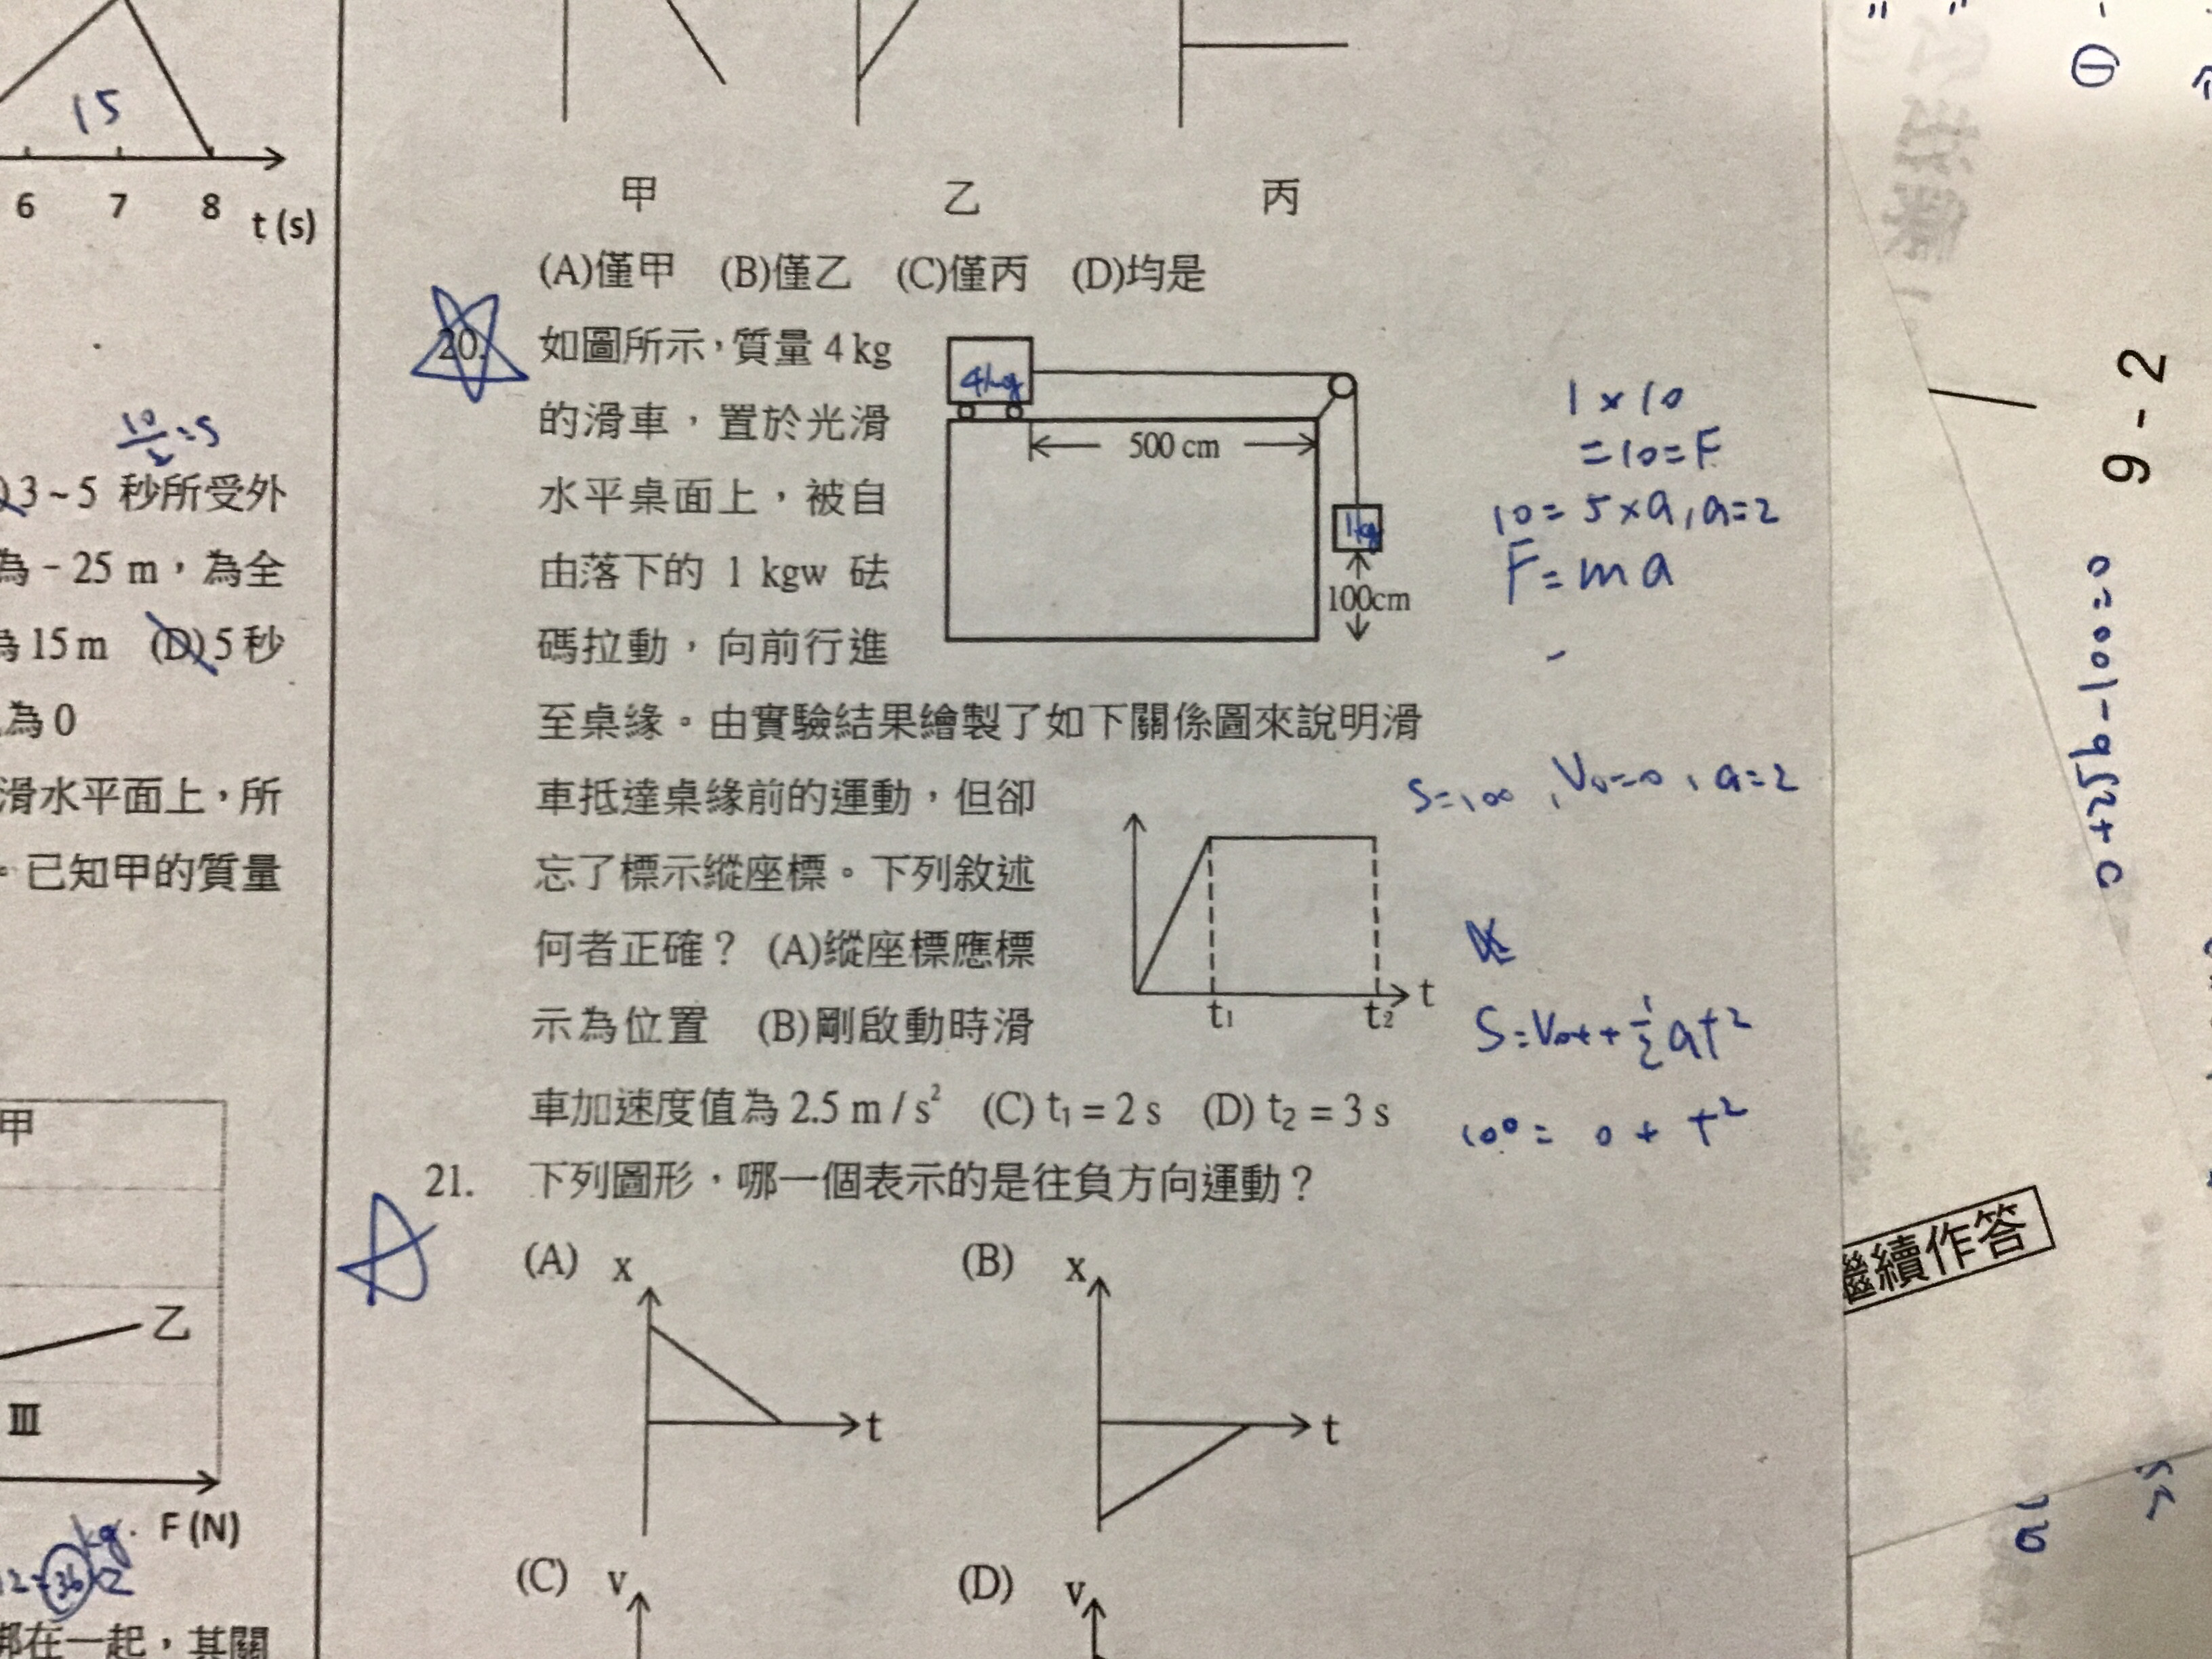 15
6 7 8 t (s)
10/2=5
3~5 秒所受外
為－25 m，為全
為 15 m (D) 5 秒
為 0
滑水平面上，所
。已知甲的質量
甲
乙
III
F (N)
kg
綁在一起，其關
甲 乙 丙
(A)僅甲 (B)僅乙 (C)僅丙 (D)均是
20. 如圖所示，質量 4 kg
的滑車，置於光滑
水平桌面上，被自
由落下的 1 kgw 砝
碼拉動，向前行進
至桌緣。由實驗結果繪製了如下關係圖來說明滑
車抵達桌緣前的運動，但卻
忘了標示縱座標。下列敘述
何者正確？ (A)縱座標應標
示為位置 (B)剛啟動時滑
車加速度值為 2.5 m / s² (C) t₁ = 2 s (D) t₂ = 3 s
4kg
500 cm
1kg
100cm
t₁ t₂ t
1×10
=10=F
10=5×a, a=2
F=ma
S=100, V₀=0, a=2
S=V₀t+½at²
100=0+t²
21. 下列圖形，哪一個表示的是往負方向運動？
(A) x t
(B) x t
(C) v
(D) v
①
9 - 2
繼續作答